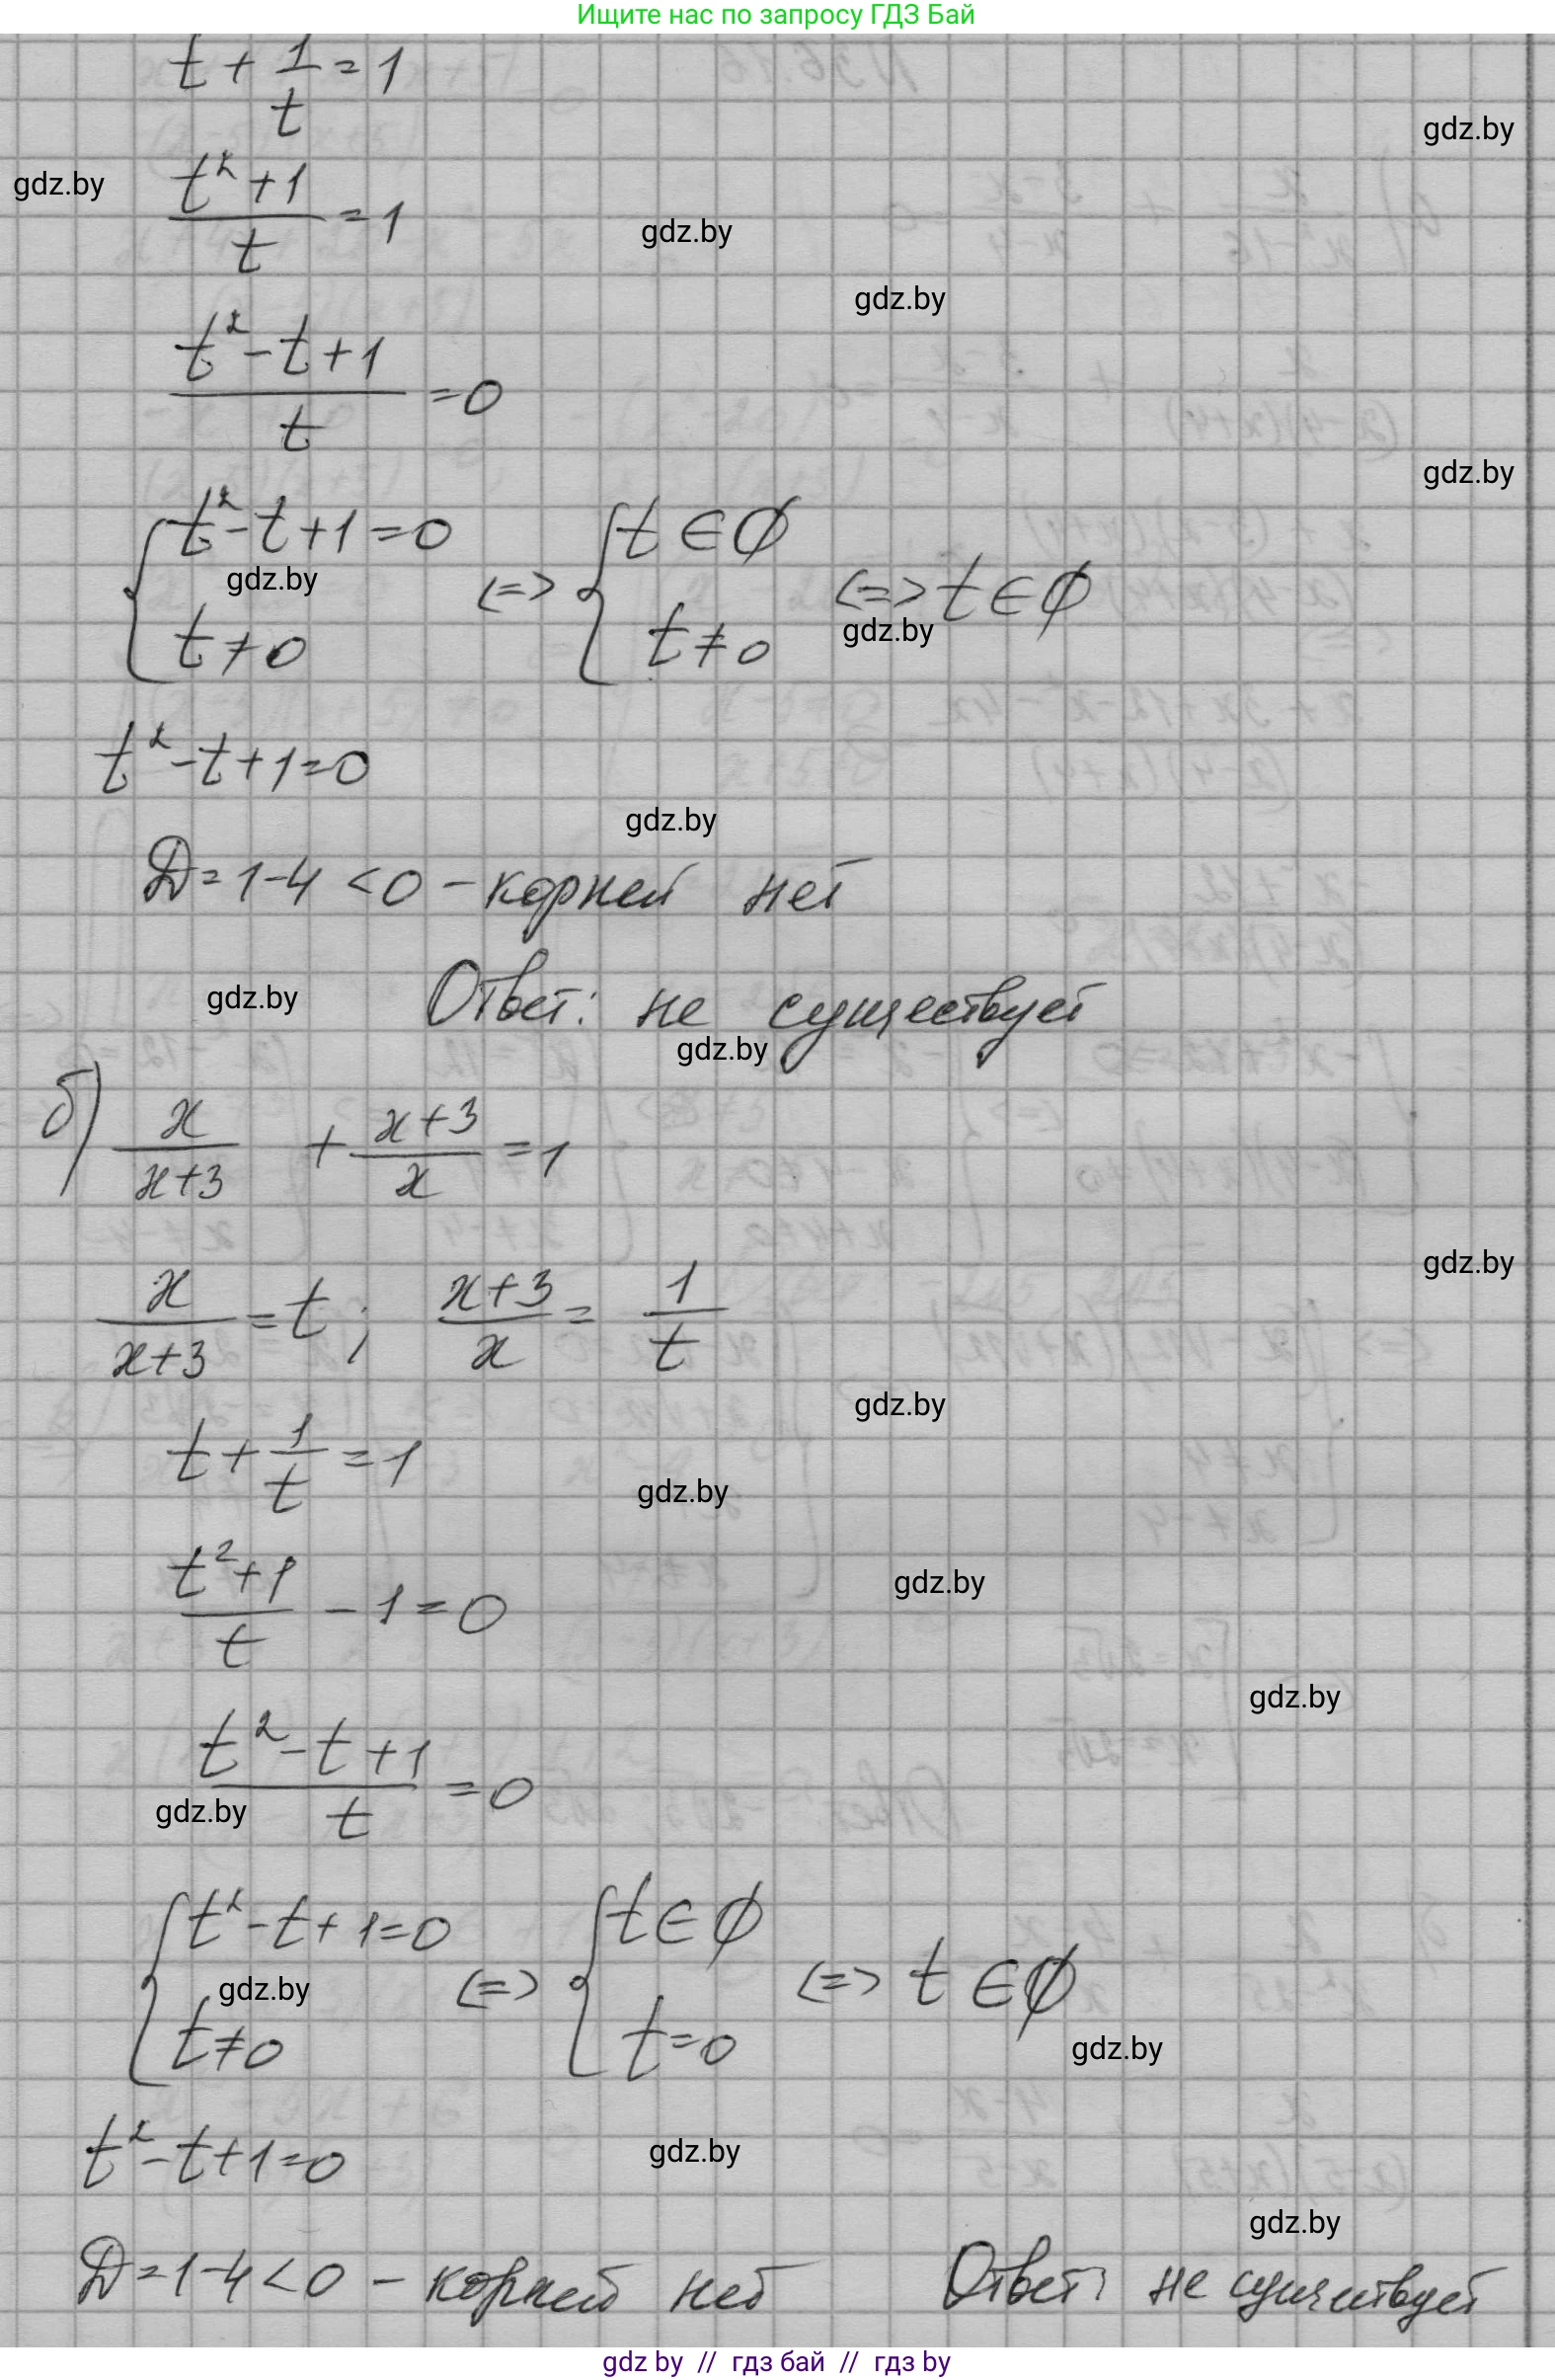 Ищите нас по запросу ГДЗ Бай
t + 1/t = 1
gdz.by
gdz.by
(t² + 1)/t = 1
gdz.by
gdz.by
(t² - t + 1)/t = 0
gdz.by
{ t² - t + 1 = 0 <=> { t ∈ ∅ <=> t ∈ ∅
gdz.by
t ≠ 0 t ≠ 0
gdz.by
t² - t + 1 = 0
gdz.by
D = 1 - 4 < 0 - корней нет
gdz.by
Ответ: не существует
gdz.by
б) x/(x+3) + (x+3)/x = 1
gdz.by
x/(x+3) = t; (x+3)/x = 1/t
gdz.by
t + 1/t = 1
gdz.by
gdz.by
(t² + 1)/t - 1 = 0
gdz.by
(t² - t + 1)/t = 0
gdz.by
{ t² - t + 1 = 0 <=> { t ∈ ∅ <=> t ∈ ∅
gdz.by
t ≠ 0 t = 0
gdz.by
t² - t + 1 = 0
gdz.by
gdz.by
D = 1 - 4 < 0 - корней нет Ответ: не существует
gdz by // гдз бай // гдз by